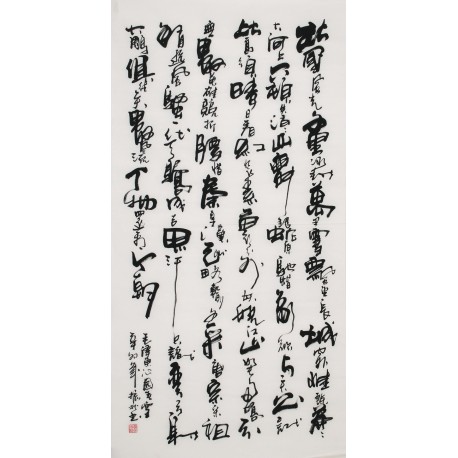 北國風光千里冰封萬里雪飄望長城內外惟餘莽莽
大河上下頓失滔滔山舞銀蛇原馳蠟象欲與天公試
比高須晴日看紅裝素裹分外妖嬈江山如此多嬌引
無數英雄競折腰惜秦皇漢武略輸文采唐宗宋祖
稍遜風騷一代天驕成吉思汗只識彎弓射
大鵰俱往矣數風流人物還看今朝
毛澤東沁園春雪
辛卯年振書